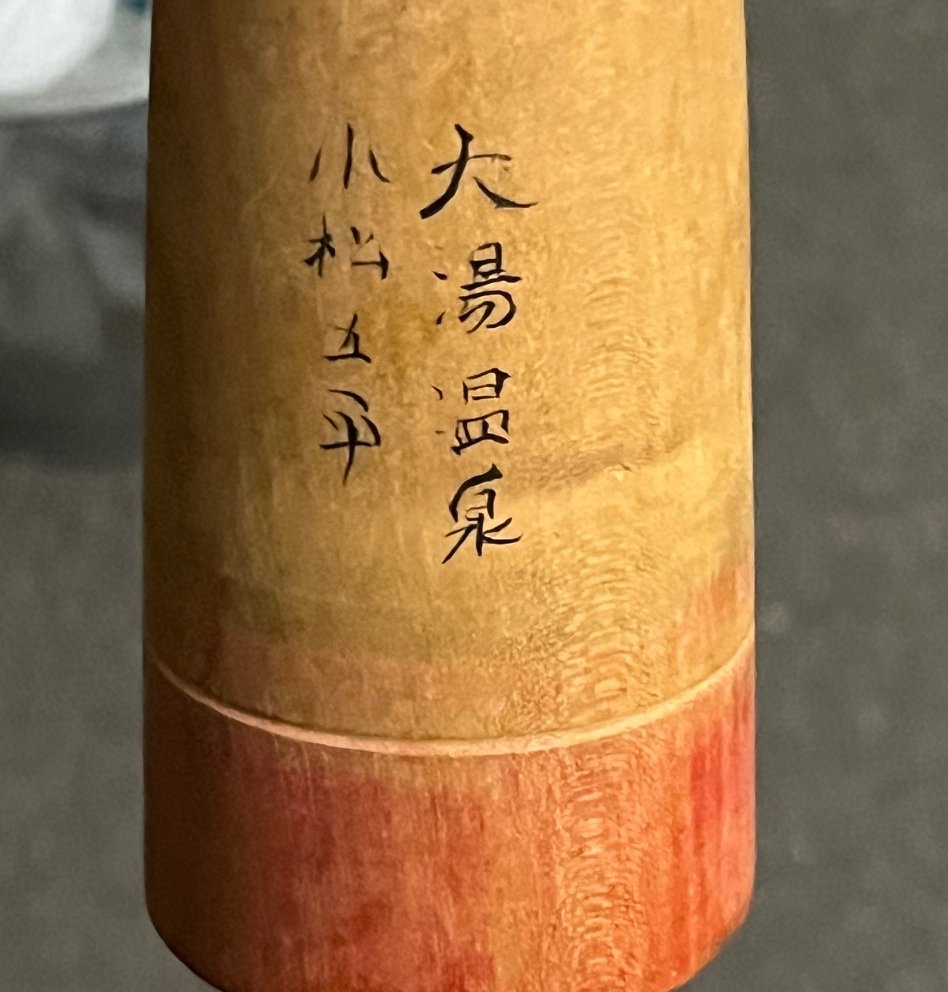 大湯温泉
小松五平